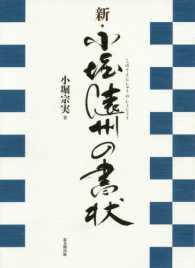 新・小堀遠州の書状
こぼりえんしゅう の しょじょう
小堀宗実 著